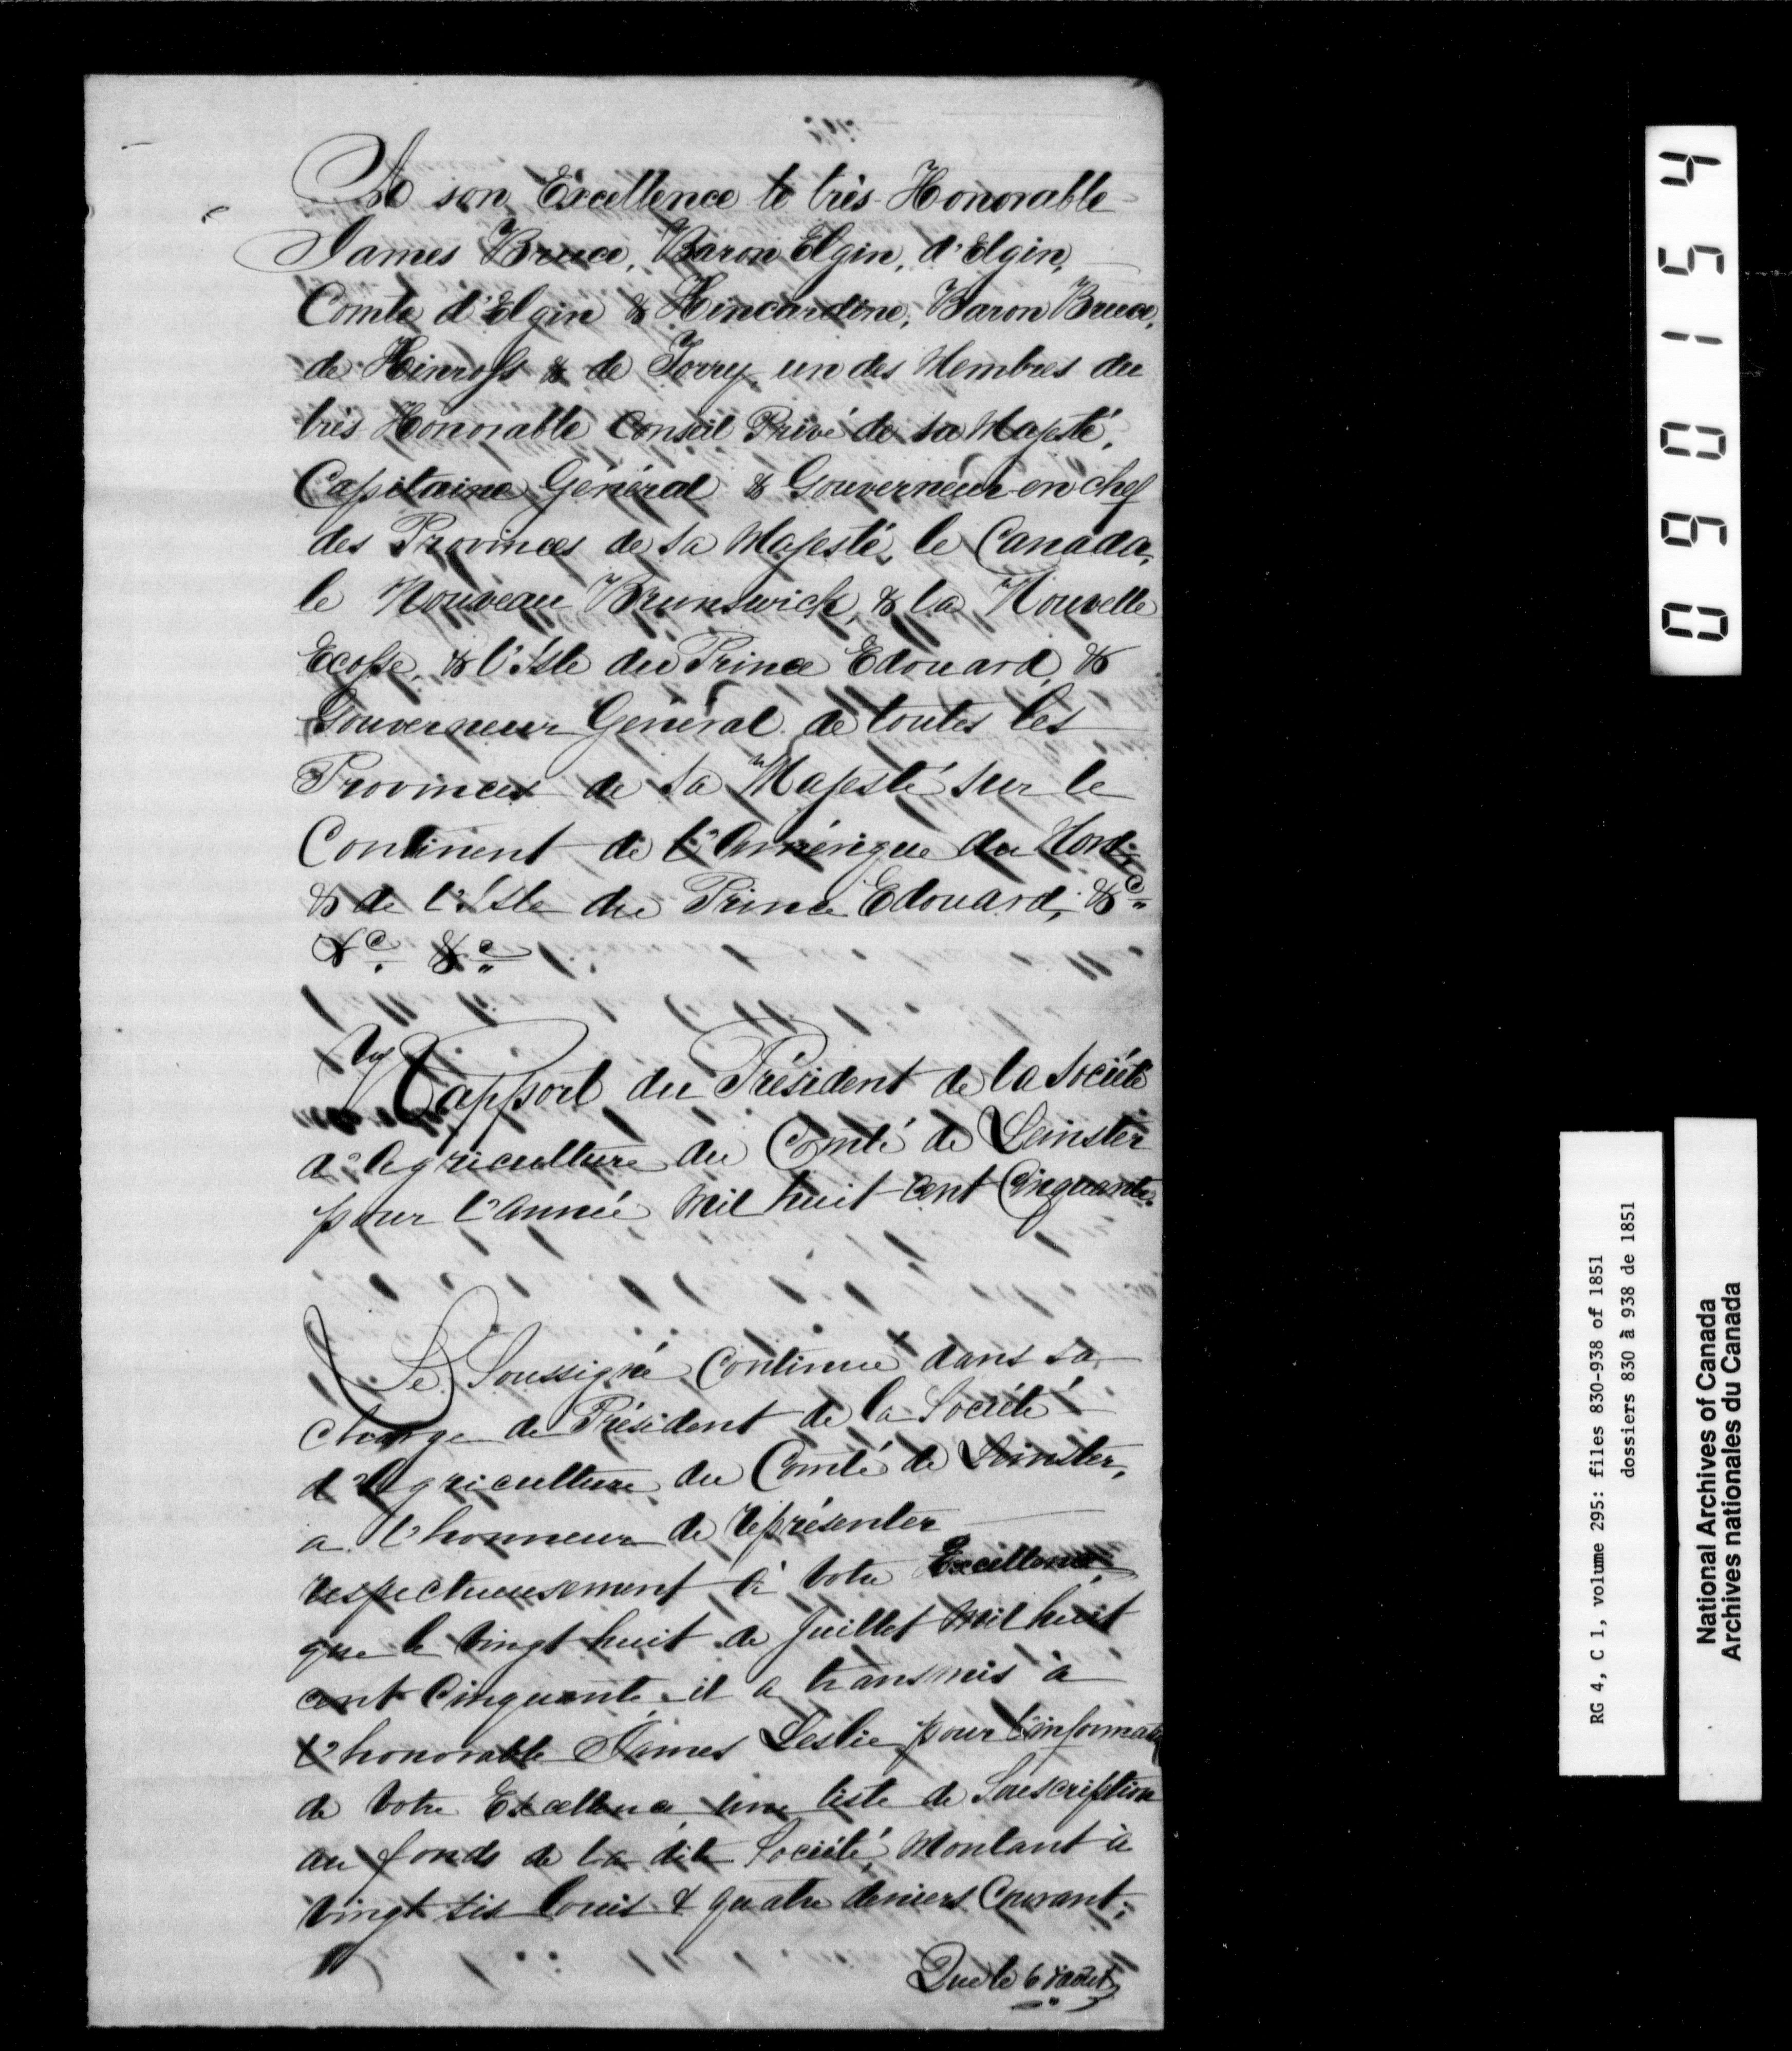 A son Excellence le très Honorable
James Bruce, Baron Elgin, d'Elgin,
Comte d'Elgin & Kincardine, Baron Bruce,
de Kinross & de Torry, un des Membres du
très Honorable Conseil Privé de Sa Majesté,
Capitaine Général & Gouverneur en chef
des Provinces de Sa Majesté, le Canada,
le Nouveau Brunswick, & la Nouvelle
Ecosse, & l'Isle du Prince Edouard, &
Gouverneur Général de toutes les
Provinces de Sa Majesté sur le
Continent de l'Amérique du Nord,
& de l'Isle du Prince Edouard, &c
&c &c
Rapport du Président de la Société
d'Agriculture du Comté de Leinster
pour l'année Mil huit cent Cinquante.
Le Soussigné Continué dans sa
charge de Président de la Société
d'Agriculture du Comté de Leinster,
a l'honneur de représenter
respectueusement à Votre Excellence,
que le vingt huit de Juillet Mil huit
cent Cinquante, il a transmis à
l'honorable James Leslie pour l'information
de Votre Excellence, une liste de Souscription
au fonds de la dite Société, Montant à
vingt six louis & quatre deniers Courant;
Que le 6 d'août
090154
RG 4, C 1, volume 295: files 830-938 of 1851
dossiers 830 à 938 de 1851
National Archives of Canada
Archives nationales du Canada